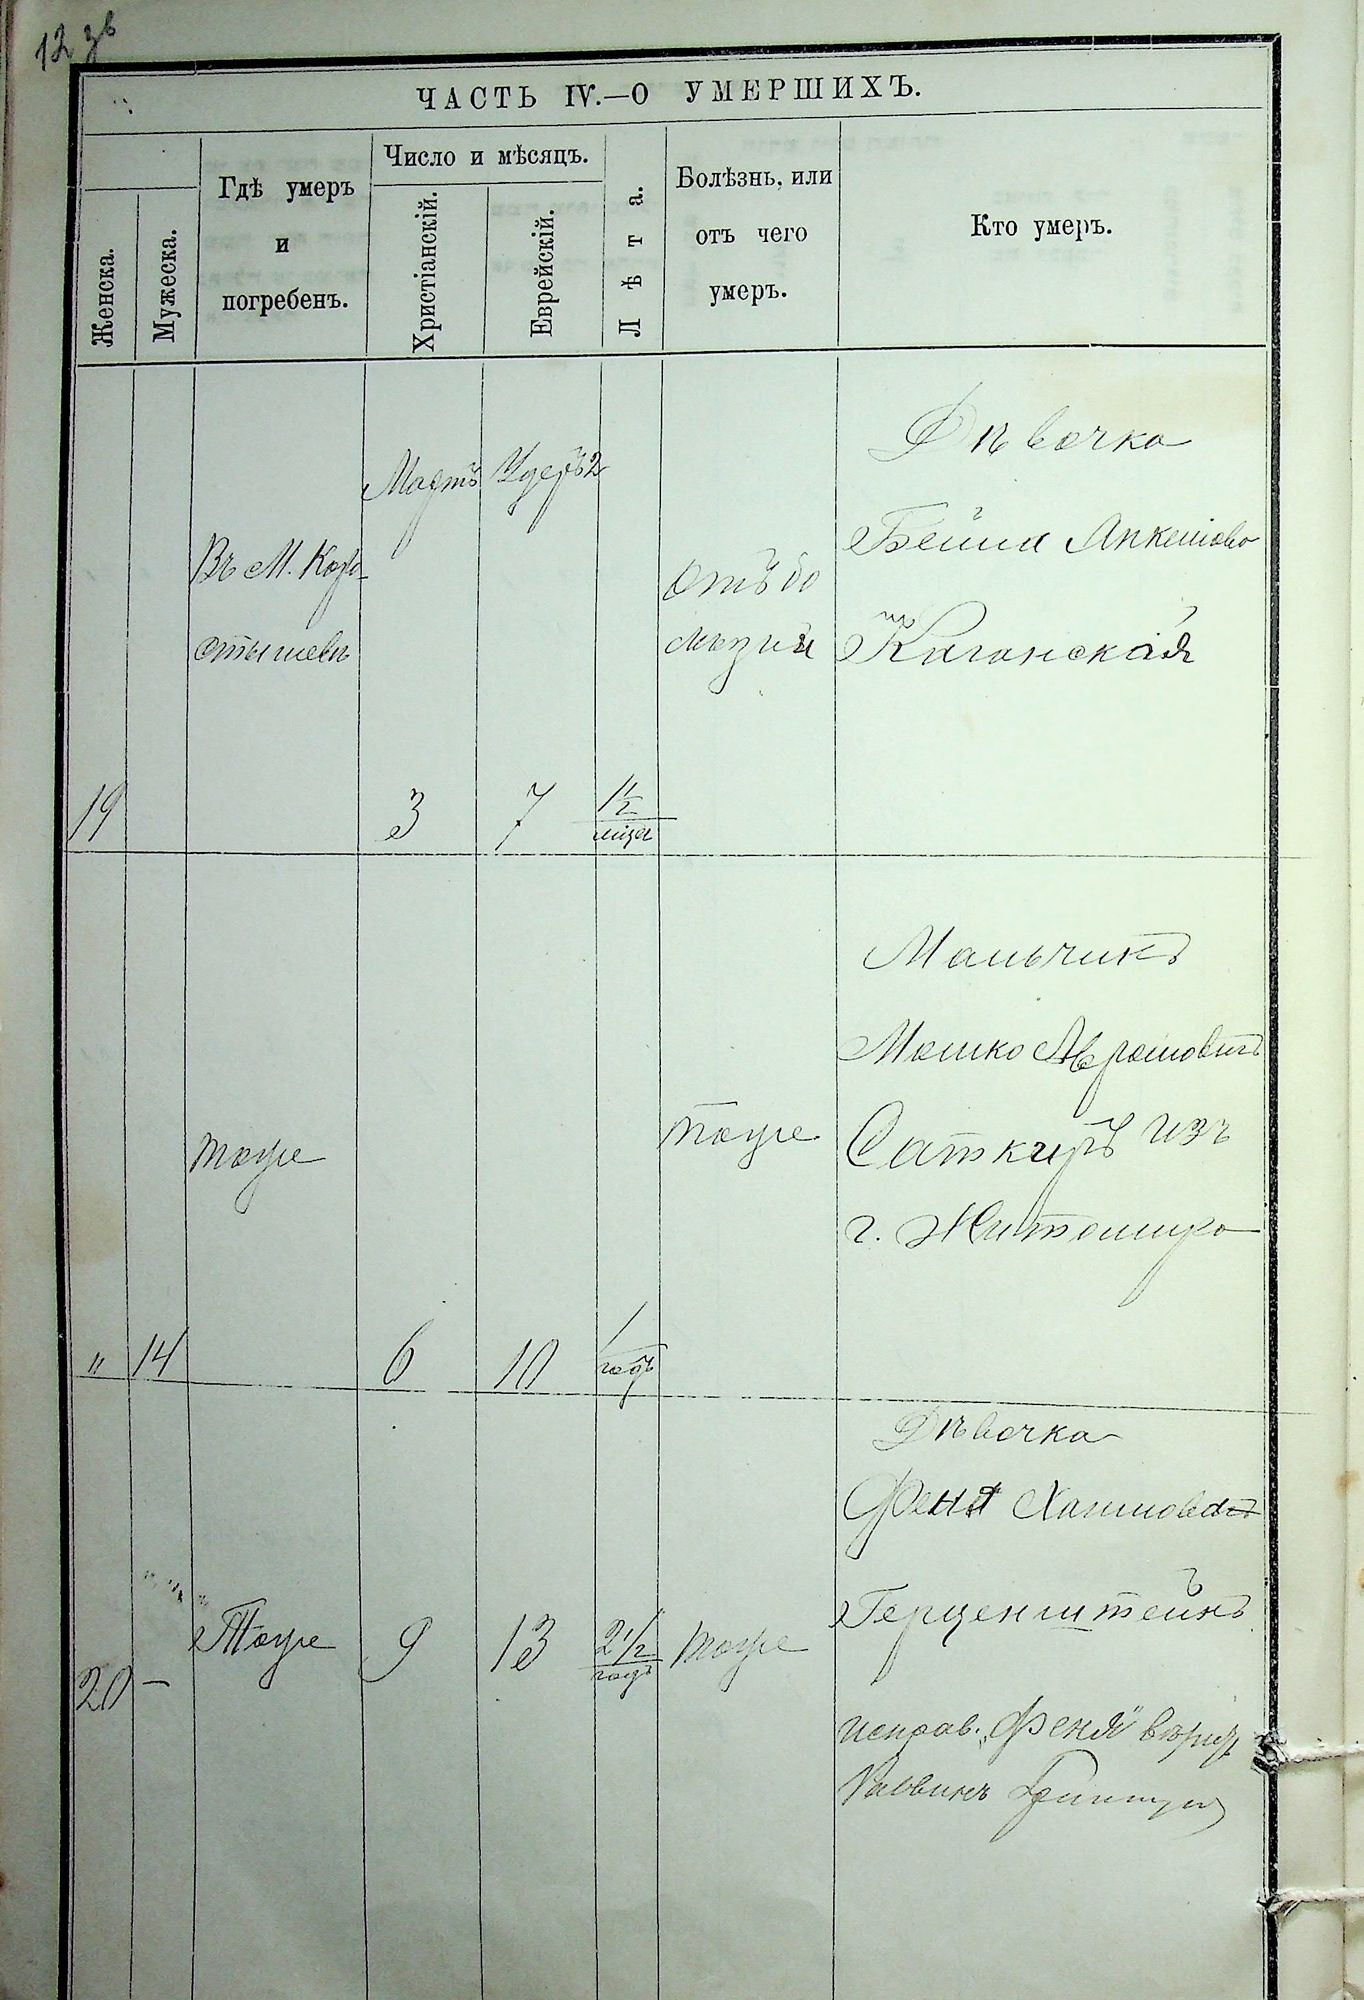 12 зв
ЧАСТЬ IV.—О УМЕРШИХЪ.
Женска.
Мужеска.
Гдѣ умеръ
и
погребенъ.
Число и мѣсяцъ.
Христіанскій.
Еврейскій.
Лѣта.
Болѣзнь, или
отъ чего
умеръ.
Кто умеръ.
19
Въ М. Коро-
стышевѣ
Мартъ
3
2
7
1 1/2
отъ бо
лѣзни
Дѣвочка
Бейла
Каганская
"
14
тоже
6
10
1
годъ
тоже
Мальчикъ
Мошко Аврамовичъ
Саткиръ изъ
г. Житомира
20
—
Тоже
9
13
2 1/2
годъ
тоже
Дѣвочка
Феня Хаимова
Герценштейнъ
исправ. „Феня" вѣрно
Раввинъ